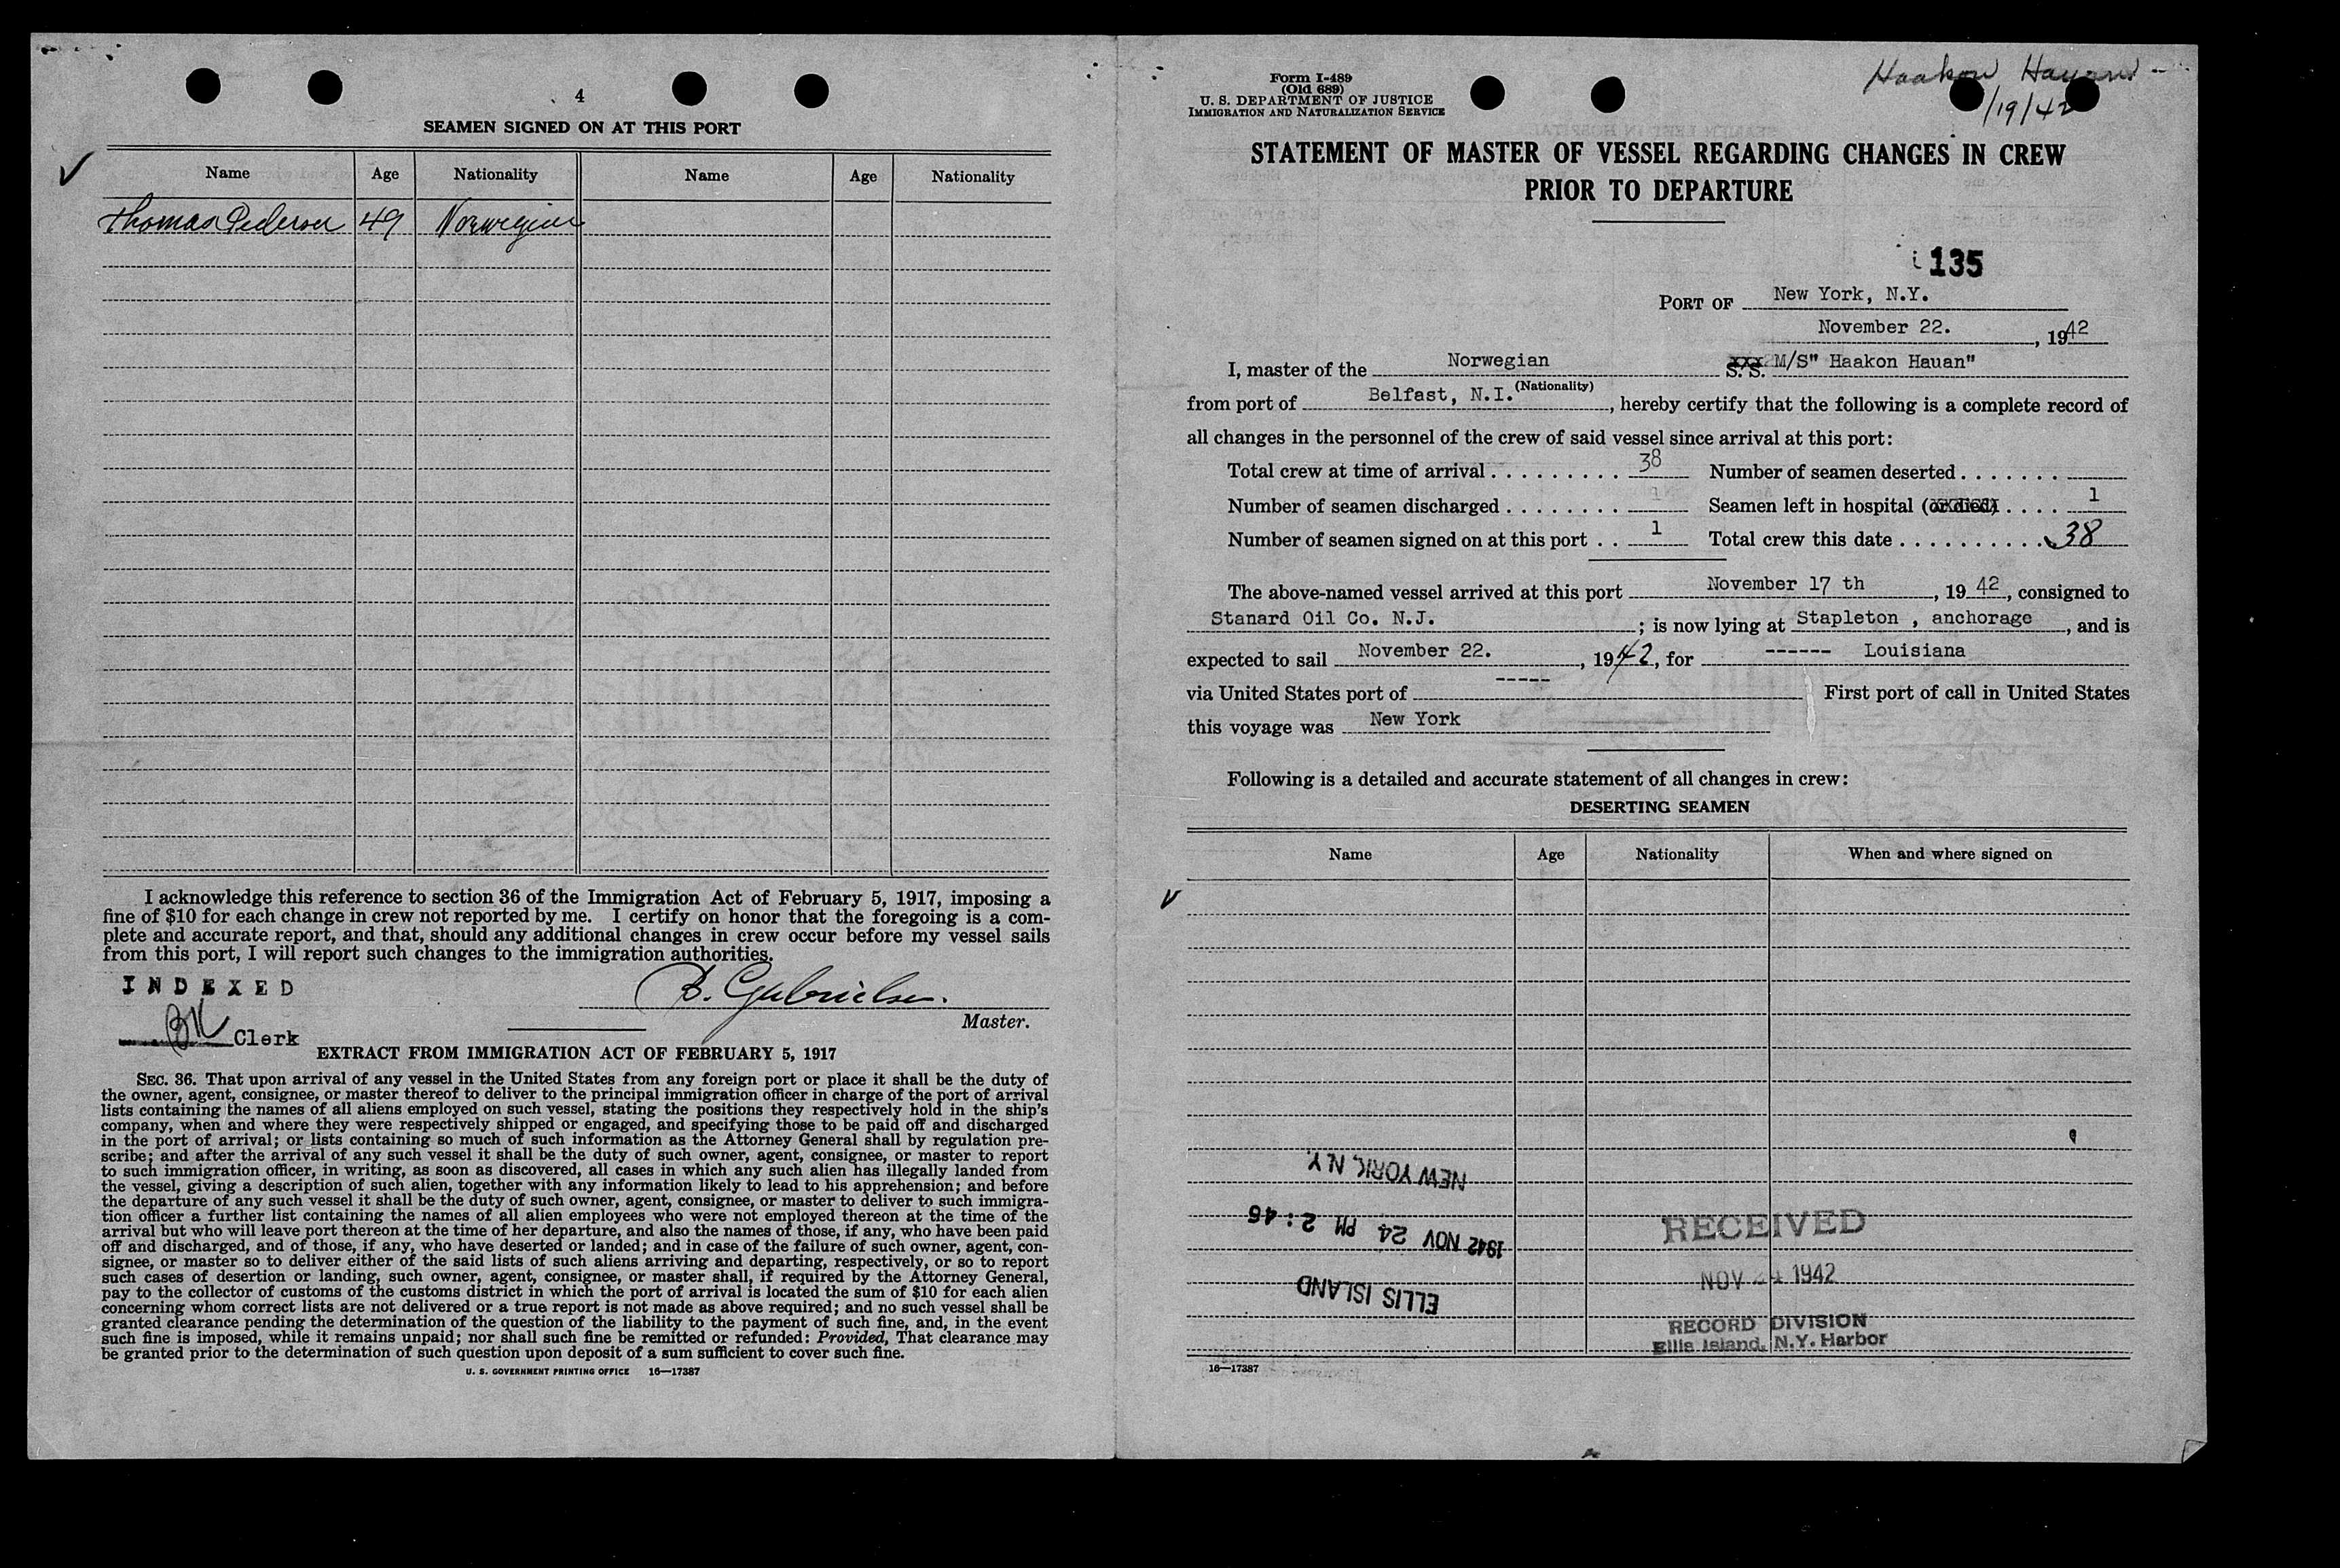 4
SEAMEN SIGNED ON AT THIS PORT
Name Age Nationality Name Age Nationality
Thomas Pedersen 49 Norwegian
I acknowledge this reference to section 36 of the Immigration Act of February 5, 1917, imposing a
fine of $10 for each change in crew not reported by me. I certify on honor that the foregoing is a com-
plete and accurate report, and that, should any additional changes in crew occur before my vessel sails
from this port, I will report such changes to the immigration authorities.
INDEXED
B. Gabrielsen.
Master.
BK Clerk
EXTRACT FROM IMMIGRATION ACT OF FEBRUARY 5, 1917
SEC. 36. That upon arrival of any vessel in the United States from any foreign port or place it shall be the duty of
the owner, agent, consignee, or master thereof to deliver to the principal immigration officer in charge of the port of arrival
lists containing the names of all aliens employed on such vessel, stating the positions they respectively hold in the ship's
company, when and where they were respectively shipped or engaged, and specifying those to be paid off and discharged
in the port of arrival; or lists containing so much of such information as the Attorney General shall by regulation pre-
scribe; and after the arrival of any such vessel it shall be the duty of such owner, agent, consignee, or master to report
to such immigration officer, in writing, as soon as discovered, all cases in which any such alien has illegally landed from
the vessel, giving a description of such alien, together with any information likely to lead to his apprehension; and before
the departure of any such vessel it shall be the duty of such owner, agent, consignee, or master to deliver to such immigra-
tion officer a further list containing the names of all alien employees who were not employed thereon at the time of the
arrival but who will leave port thereon at the time of her departure, and also the names of those, if any, who have been paid
off and discharged, and of those, if any, who have deserted or landed; and in case of the failure of such owner, agent, con-
signee, or master so to deliver either of the said lists of such aliens arriving and departing, respectively, or so to report
such cases of desertion or landing, such owner, agent, consignee, or master shall, if required by the Attorney General,
pay to the collector of customs of the customs district in which the port of arrival is located the sum of $10 for each alien
concerning whom correct lists are not delivered or a true report is not made as above required; and no such vessel shall be
granted clearance pending the determination of the question of the liability to the payment of such fine, and, in the event
such fine is imposed, while it remains unpaid; nor shall such fine be remitted or refunded: Provided, That clearance may
be granted prior to the determination of such question upon deposit of a sum sufficient to cover such fine.
U. S. GOVERNMENT PRINTING OFFICE 16—17387
Form I-489
(Old 689)
U. S. DEPARTMENT OF JUSTICE
IMMIGRATION AND NATURALIZATION SERVICE
Haakon Hauan
/19/42
STATEMENT OF MASTER OF VESSEL REGARDING CHANGES IN CREW
PRIOR TO DEPARTURE
135
PORT OF New York, N.Y.
November 22. , 1942
I, master of the Norwegian S. S. M/S" Haakon Hauan"
(Nationality)
from port of Belfast, N.I. , hereby certify that the following is a complete record of
all changes in the personnel of the crew of said vessel since arrival at this port:
Total crew at time of arrival 38 Number of seamen deserted
Number of seamen discharged Seamen left in hospital (or died) 1
Number of seamen signed on at this port 1 Total crew this date 38
The above-named vessel arrived at this port November 17 th , 19 42, consigned to
Stanard Oil Co. N.J. ; is now lying at Stapleton , anchorage , and is
expected to sail November 22. , 1942, for ------ Louisiana
via United States port of ----- First port of call in United States
this voyage was New York
Following is a detailed and accurate statement of all changes in crew:
DESERTING SEAMEN
Name Age Nationality When and where signed on
NEW YORK, N.Y.
1942 NOV 24 PM 2:46
ELLIS ISLAND
RECEIVED
NOV 24 1942
RECORD DIVISION
Ellis Island, N.Y. Harbor
16—17387